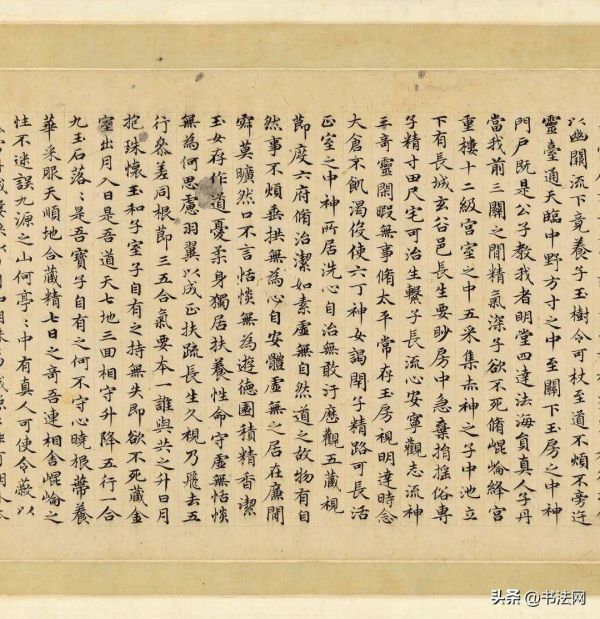 以幽關流下竟養子玉樹令可杖至道不煩不旁迕
靈臺通天臨中野方寸之中至關下玉房之中神
門戶既是公子教我者明堂四達法海員真人子丹
當我前三關之間精氣深子欲不死脩崐崘絳宮
重樓十二級宮室之中五采集赤神之子中池立
下有長城玄谷邑長生要眇房中急棄捐搖俗專
子精寸田尺宅可治生繫子長流心安寧觀志流神
三奇靈閑暇無事脩太平常存玉房視明達時念
大倉不飢渴役使六丁神女謁閉子精路可長活
正室之中神所居洗心自治無敢汙歷觀五藏視
節度六府脩治潔如素虛無自然道之故物有自
然事不煩垂拱無為心自安體虛無之居在廉間
寂莫曠然口不言恬惔無為遊德園積精香潔
玉女存作道憂柔身獨居扶養性命守虛無恬惔
無為何思慮羽翼以成正扶疏長生久視乃飛去五
行參差同根節三五合氣要本一誰與共之升日月
抱珠懷玉和子室子自有之持無失即欲不死藏金
室出月入日是吾道天七地三回相守升降五行一合
九玉石落〻是吾寶子自有之何不守心曉根蔕養
華采服天順地合藏精七日之奇吾連相舍崐崘之
性不迷誤九源之山何亭〻中有真人可使令蔽以
头条@书法网